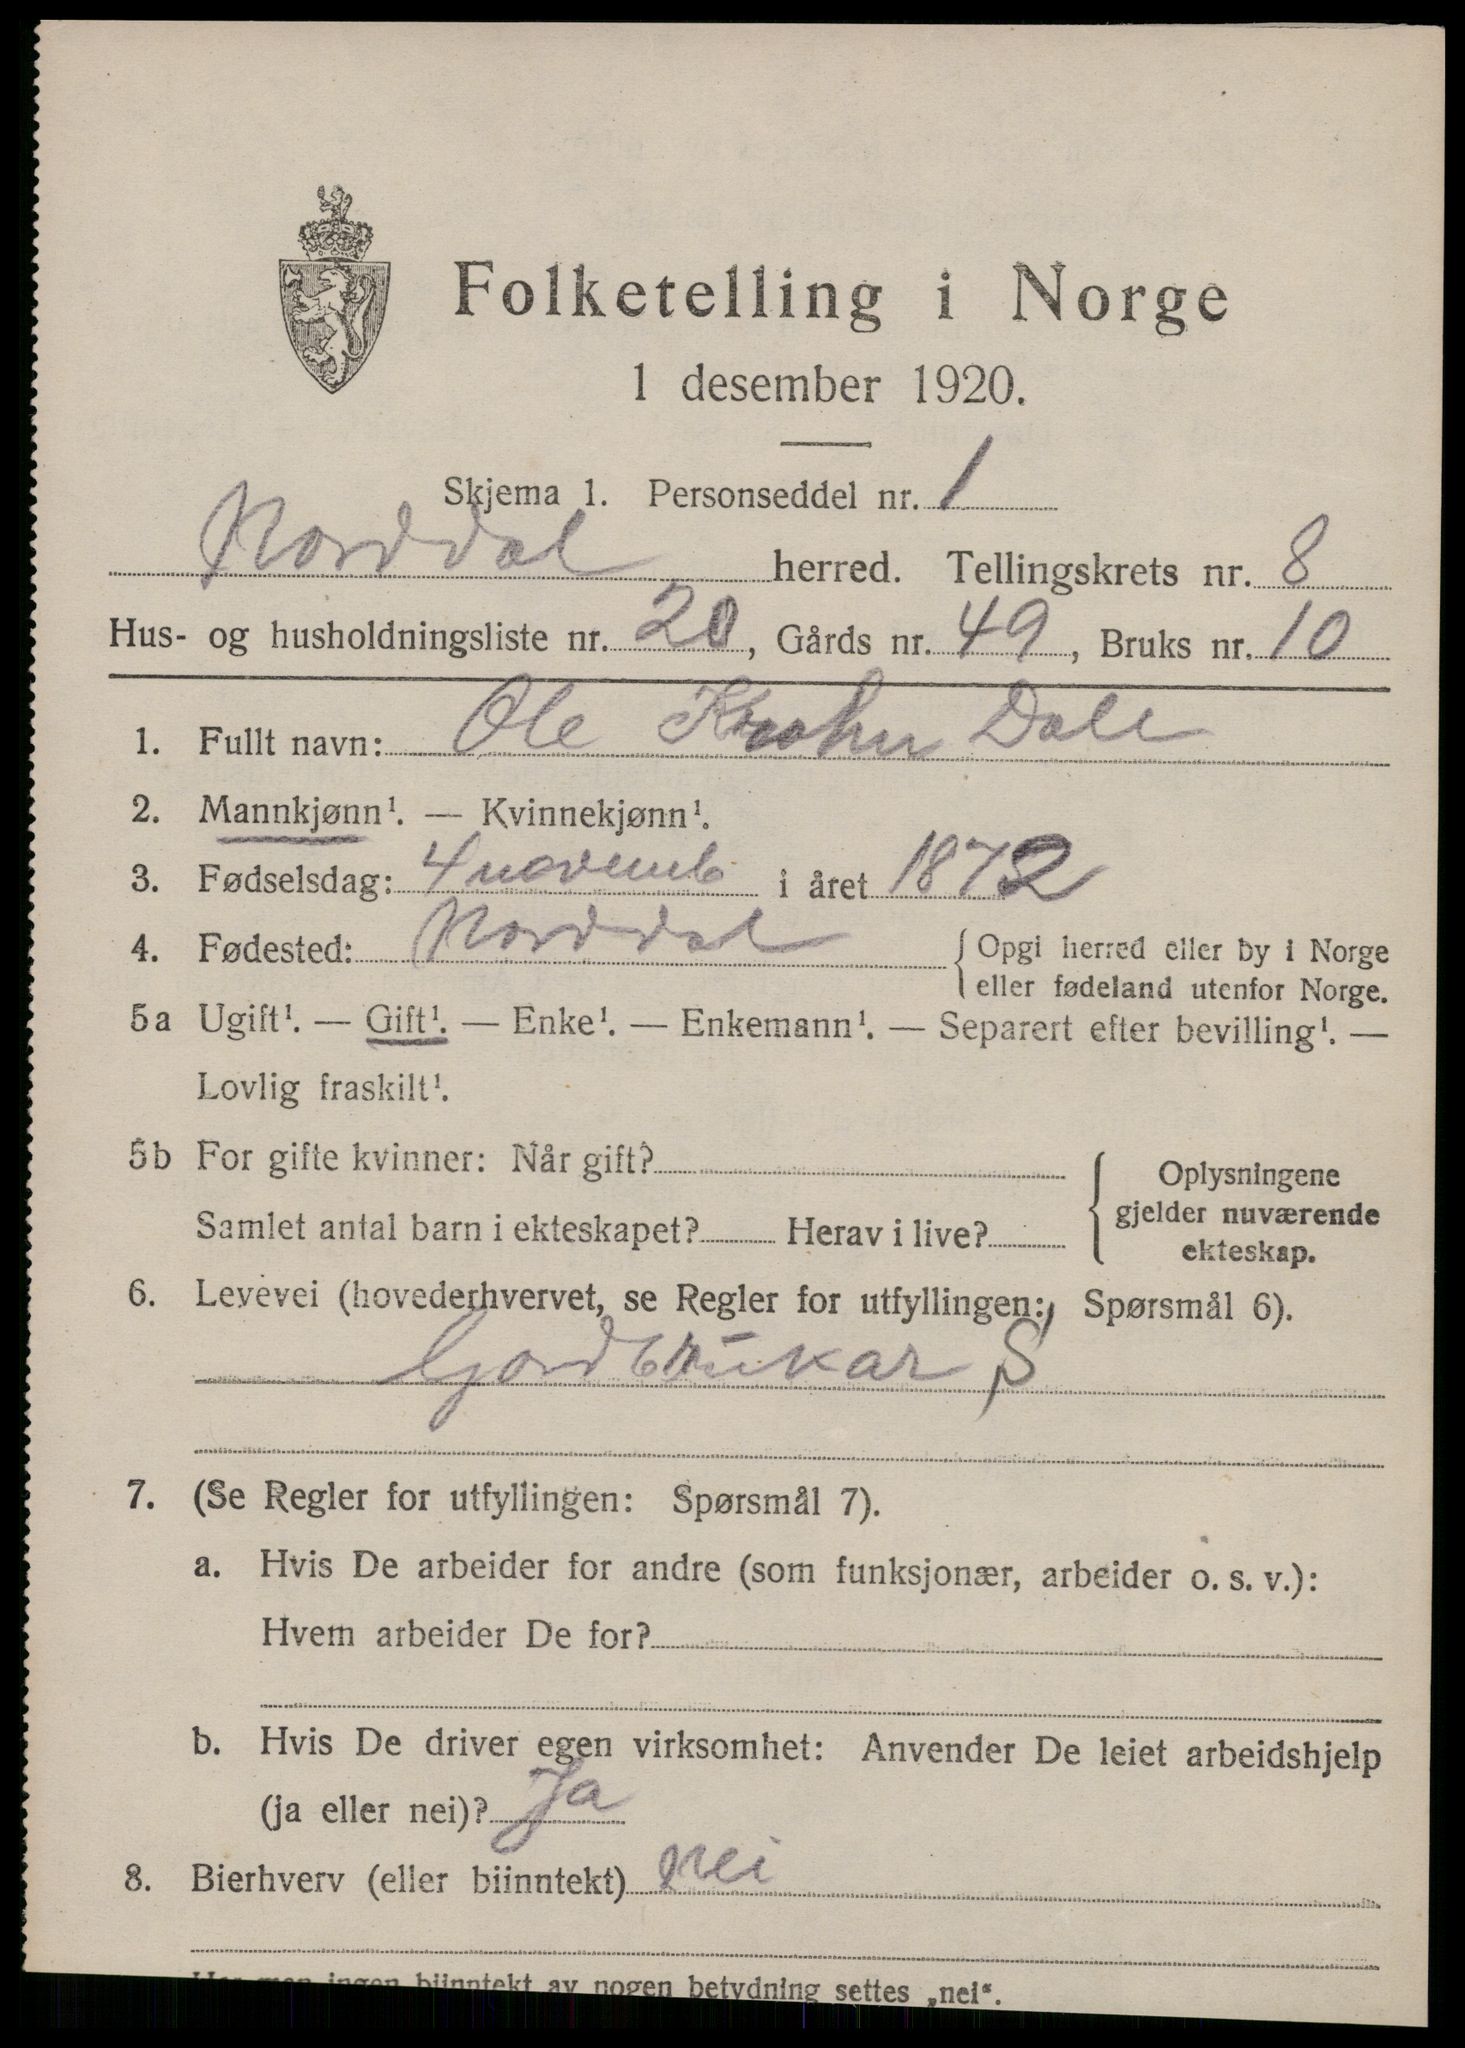 Folketelling i Norge
1 desember 1920.
Skjema 1. Personseddel nr. 1
Norddal herred. Tellingskrets nr. 8
Hus- og husholdningsliste nr. 20, Gårds nr. 49, Bruks nr. 10
1. Fullt navn: Ole Krohn Dale
2. Mannkjønn¹. — Kvinnekjønn¹.
3. Fødselsdag: 4 novemb i året 1872
4. Fødested: Norddal { Opgi herred eller by i Norge
eller fødeland utenfor Norge.
5a Ugift¹. — Gift¹. — Enke¹. — Enkemann¹. — Separert efter bevilling¹. —
Lovlig fraskilt¹.
5b For gifte kvinner: Når gift?
Samlet antal barn i ekteskapet? Herav i live?
{ Oplysningene
gjelder nuværende
ekteskap.
6. Levevei (hovederhvervet, se Regler for utfyllingen: Spørsmål 6).
Gordbrukar S
7. (Se Regler for utfyllingen: Spørsmål 7).
a. Hvis De arbeider for andre (som funksjonær, arbeider o. s. v.):
Hvem arbeider De for?
b. Hvis De driver egen virksomhet: Anvender De leiet arbeidshjelp
(ja eller nei)? Ja
8. Bierhverv (eller biinntekt) nei
Har man ingen biinntekt av nogen betydning settes „nei“.